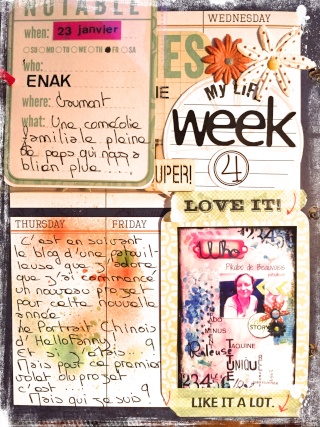 NOTABLE
when: 23 janvier
SU MO TU WE TH FR SA
who:
ENAK
where: Gaumont
what: Une comédie
familiale pleine
de peps qui nous a
bien plue....
WEDNESDAY
IES
IE
UPER!
My Life
week
4
LOVE IT!
THURSDAY
FRIDAY
C'est en suivant
le blog d'une
leuse que j'adore
que j'ai commencé
un nouveau projet
pour cette nouvelle
année...
Le Portrait Chinois
d'HelloFanny
Et si j'étais...
Mais pour ce premier
volet du projet
c'est
Mais qui je suis?
Pikube de Beauvoies
STORY
MINUS
TAQUINE
Raleuse
UNIQUE
234
LIKE IT A LOT.